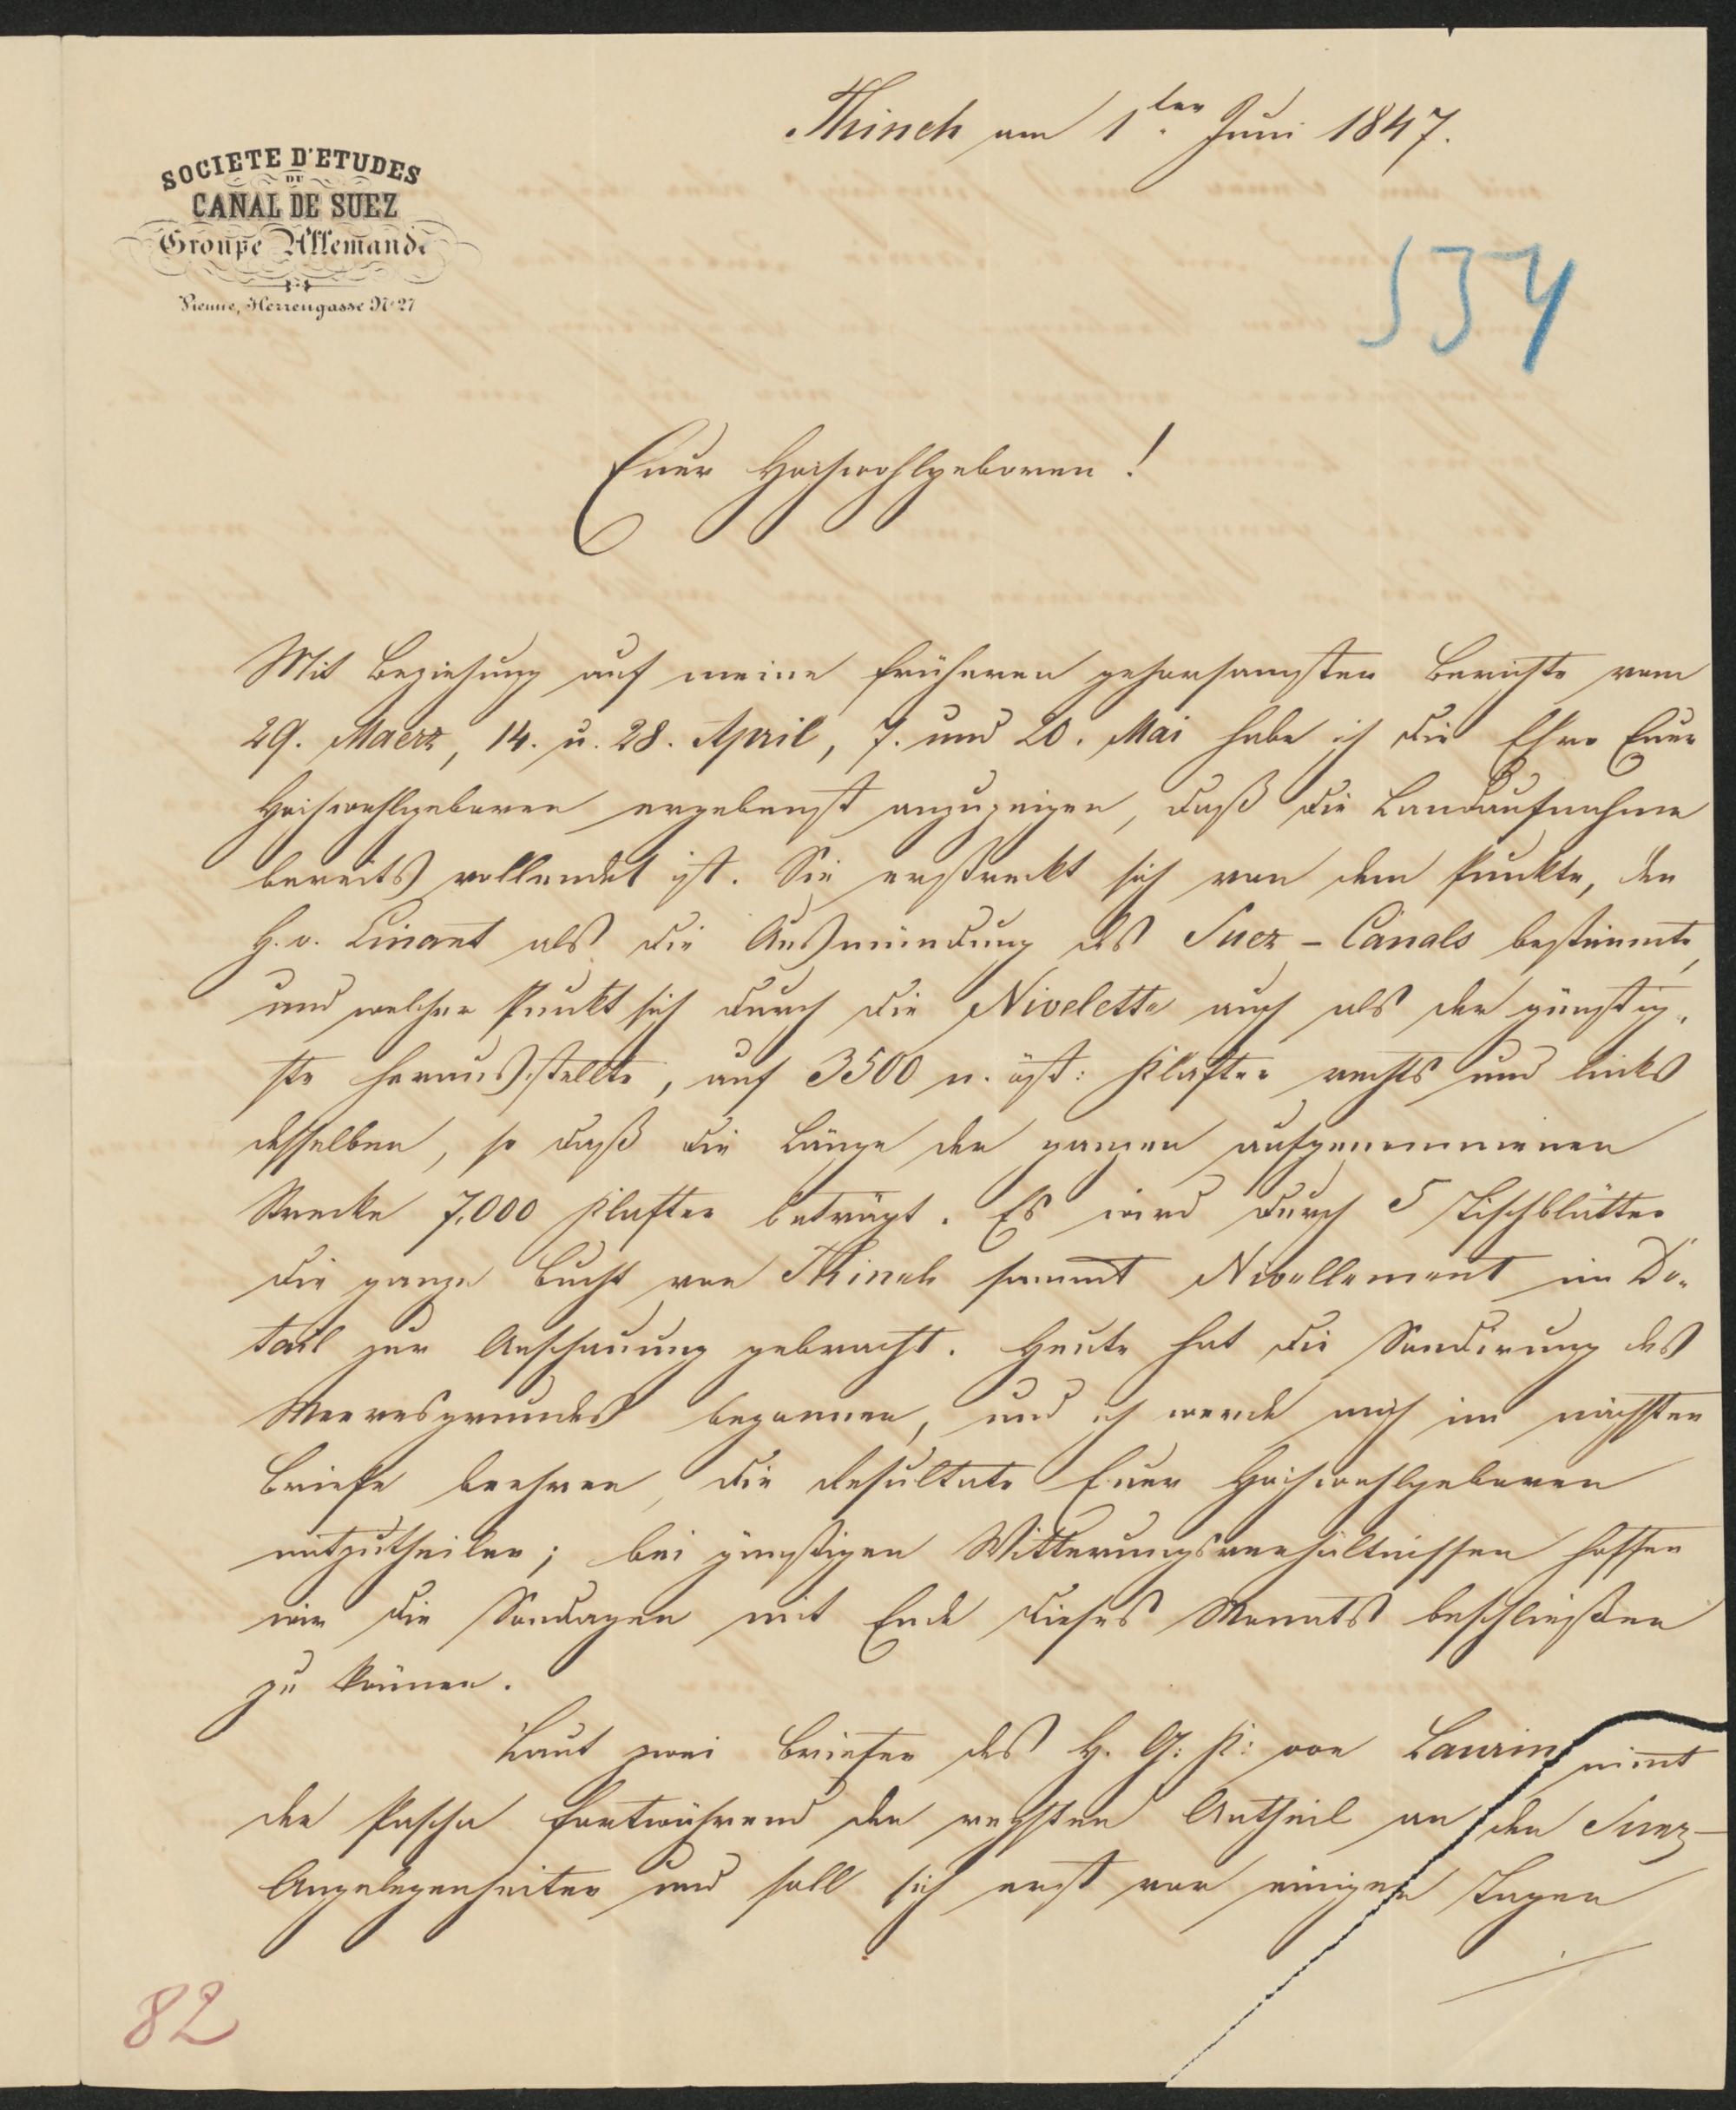 Thineh am 1ten Juni 1847.
SOCIETE D'ETUDES
DU
CANAL DE SUEZ
Groupe Allemande
Vienne, Herrengasse No 27
534
Euer Hochwohlgeboren!
Mit Beziehung auf meine früheren gehorsamsten Berichte vom
29. Maerz, 14. u. 28. April, 7. und 20. Mai habe ich die Ehre Euer
Hochwohlgeboren ergebenst anzuzeigen, daß die Landaufnahme
bereits vollendet ist. Sie erstreckt sich von dem Punkte, den
H. v. Linant als die Ausmündung des Suez-Canals bestimmte,
und welcher Punkt sich durch die Nivelette auch als der günstig-
ste herausstellte, auf 3500 n. öst: Klafter rechts und links
desselben, so daß die Länge der ganzen aufgenommenen
Strecke 7,000 Klafter beträgt. Es wird durch 5 Tischblätter
die ganze Bucht von Thineh sammt Nivellement im De-
tail zur Anschauung gebracht. Heute hat die Sondirung des
Meeresgrundes begonnen, und ich werde mich im nächsten
Briefe beehren, die Resultate Euer Hochwohlgeboren
mitzutheilen; bei günstigen Witterungsverhältnissen hoffen
wir die Sondagen mit Ende dieses Monats beschließen
zu können.
Laut zwei Briefen des H. G: K: von Laurin nimt
der Pascha fortwährend den regsten Antheil an den Suez-
Angelegenheiten und soll sich erst vor einigen Tagen
82